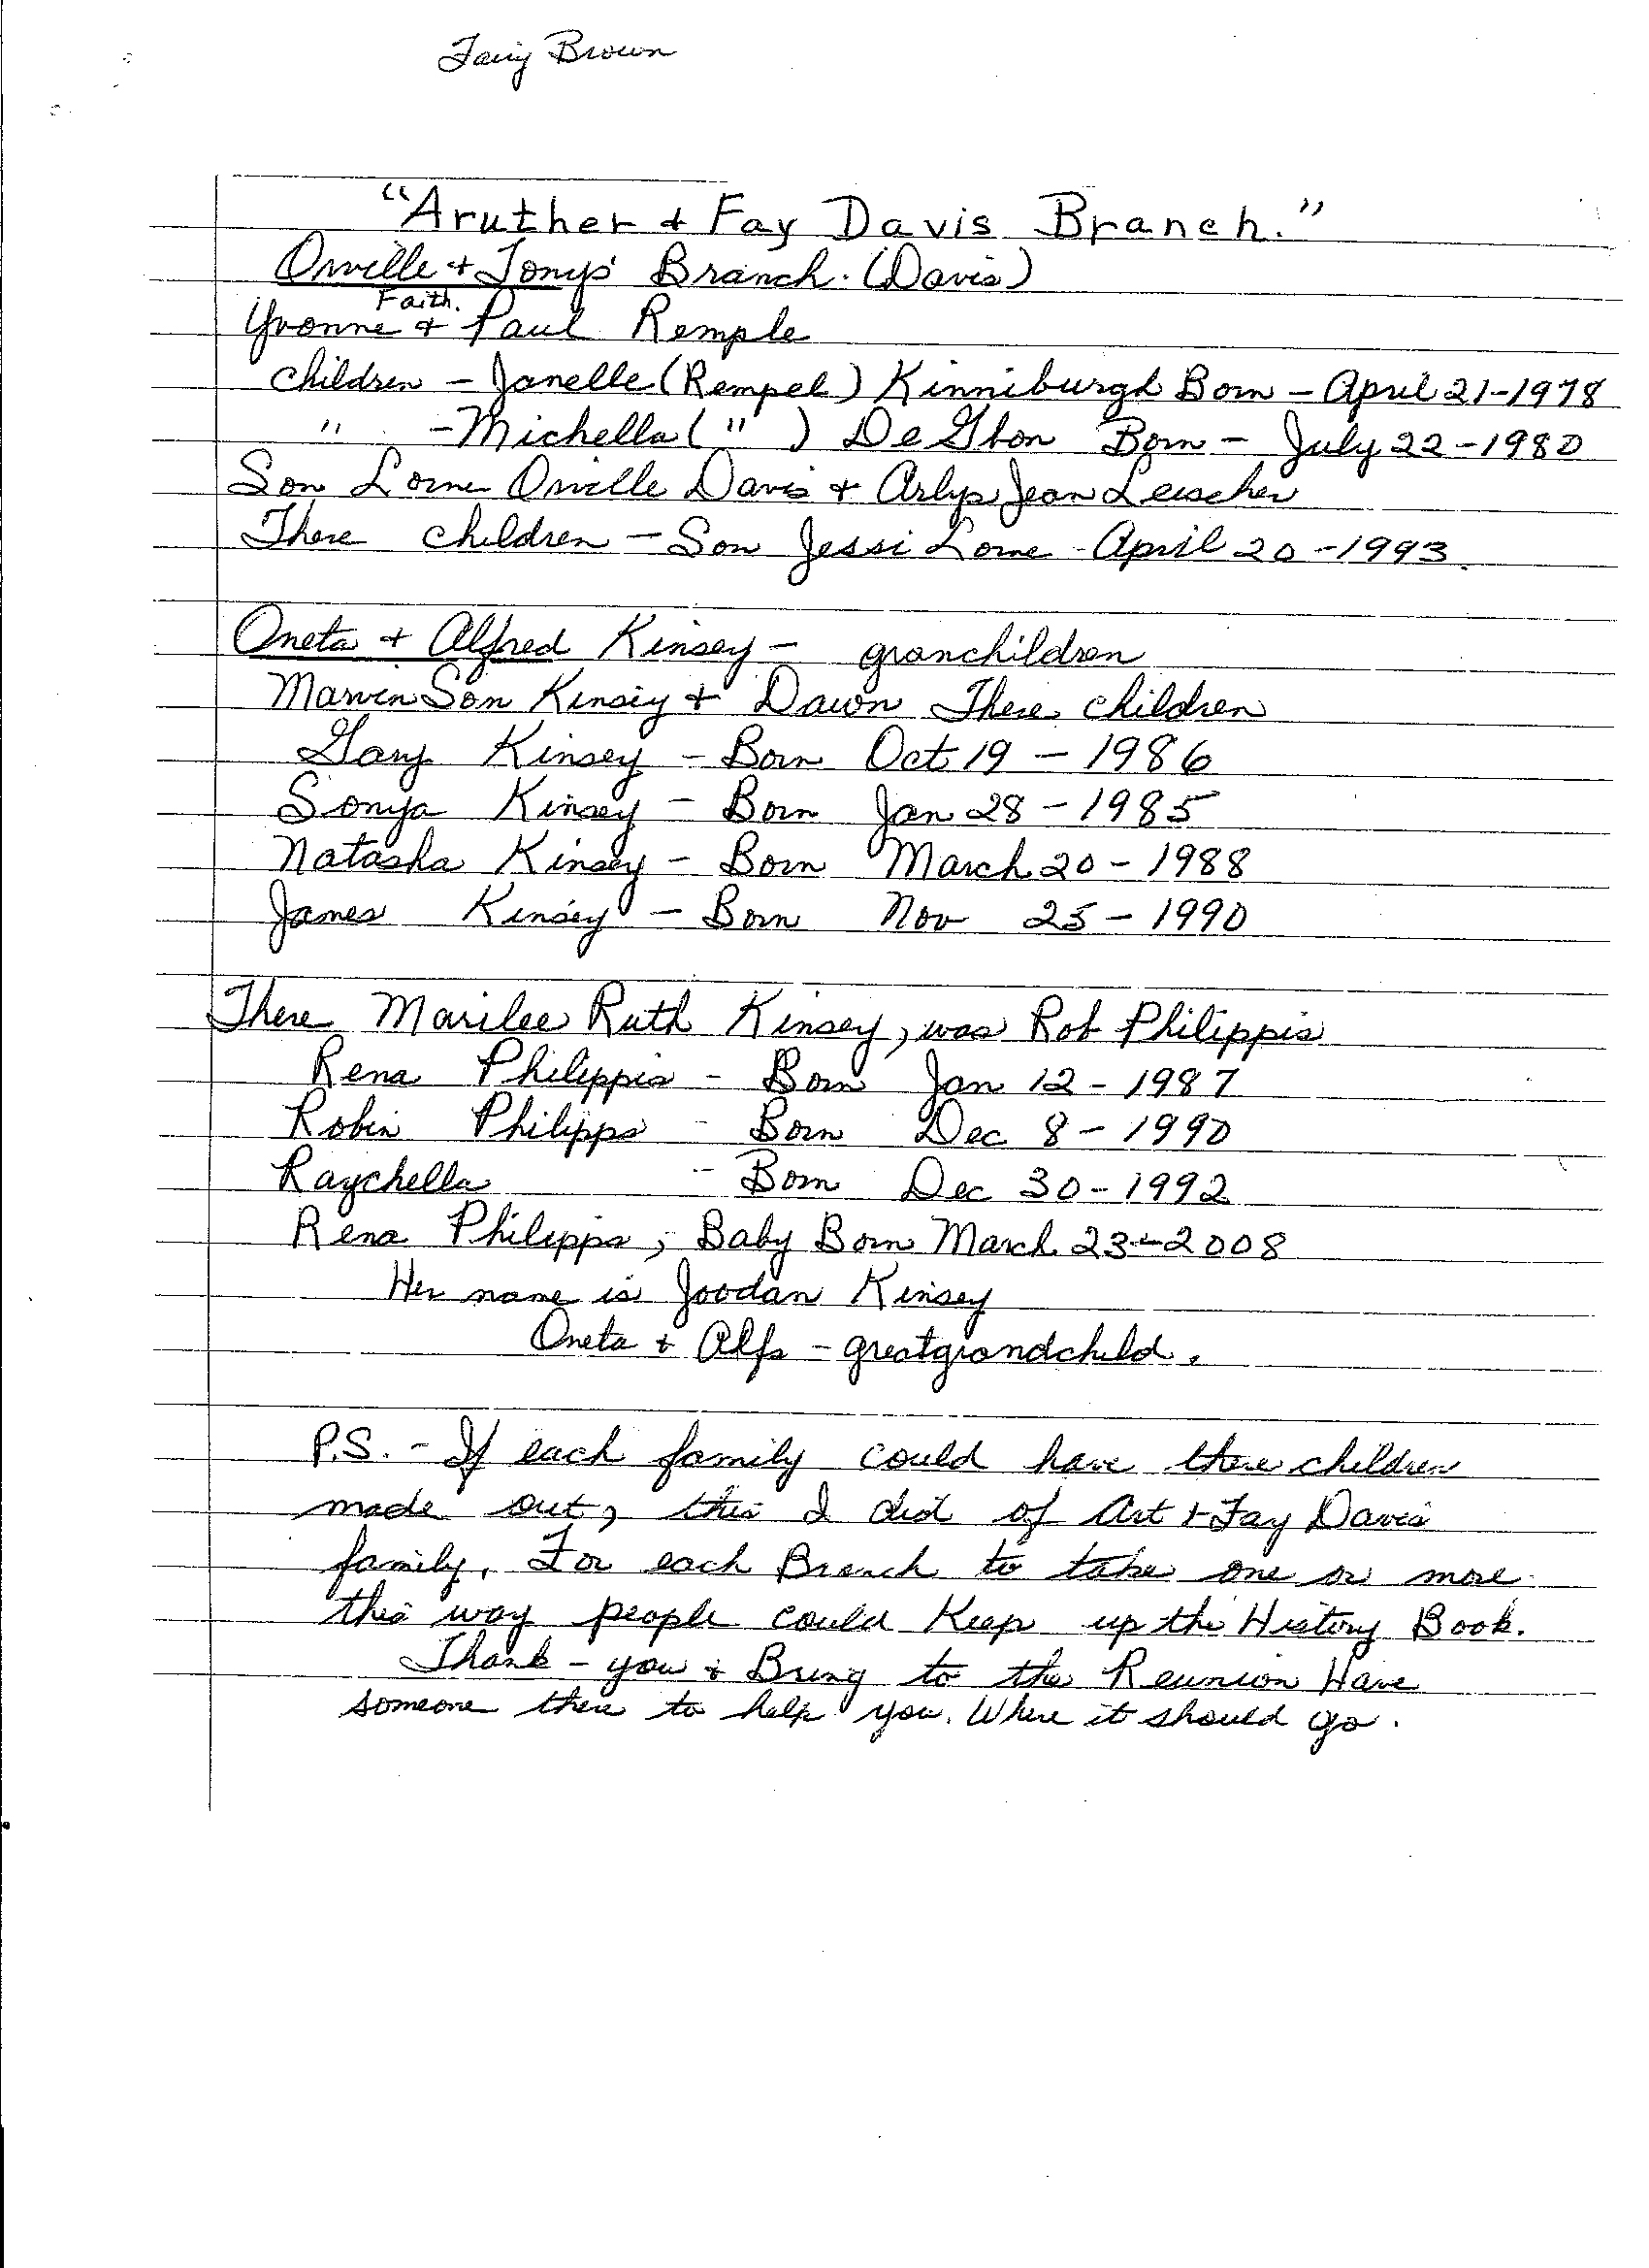 Fairy Brown
"Aruther + Fay Davis Branch."
Orville + Tonys' Branch. (Davis)
Faith.
Yvonne + Paul Remple
children - Janelle (Rempel) Kinniburgh Born - April 21-1978
" - Michella ( " ) De Born - July 22-1980
Son Lorne Orville Davis + Arlys Jean Leischer
There children - Son Jessi Lorne - April 20-1993.
Oneta + Alfred Kinsey - granchildren
Marven Son Kinsey + Dawn There children
Gary Kinsey - Born Oct 19 - 1986
Sonya Kinsey - Born Jan 28 - 1985
Natasha Kinsey - Born March 20 - 1988
James Kinsey - Born Nov 25 - 1990
There Marilee Ruth Kinsey, was Rob Philippis
Rena Philippis - Born Jan 12 - 1987
Robin Philipps - Born Dec 8 - 1990
Raychella - Born Dec 30 - 1992
Rena Philipps, Baby Born March 23 - 2008
Her name is Joodan Kinsey
Oneta + Alfs - greatgrandchild.
P.S. - If each family could have there children
made out, this I did of Art + Fay Davis
family. For each Branch to take one or more
this way people could Keep up the History Book.
Thank - you + Bring to the Reunion Have
someone there to help you. Where it should go.